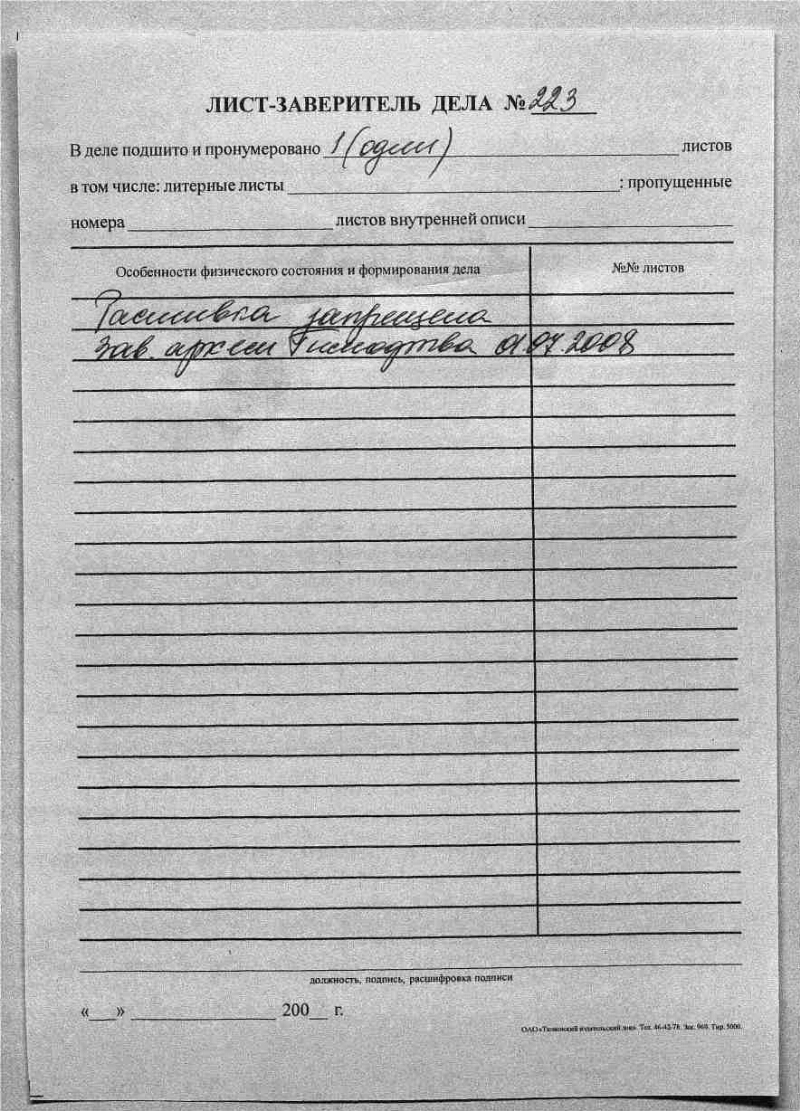 ЛИСТ-ЗАВЕРИТЕЛЬ ДЕЛА № 223
В деле подшито и пронумеровано 1 (один) листов
в том числе: литерные листы : пропущенные
номера листов внутренней описи
Особенности физического состояния и формирования дела №№ листов
Расшивка запрещена
Зав. архвом 01.07.2008
должность, подпись, расшифровка подписи
« » 200 г.
ОАО «Тюменский издательский дом». Тел. 46-42-78. Зак. 960. Тир. 5000.